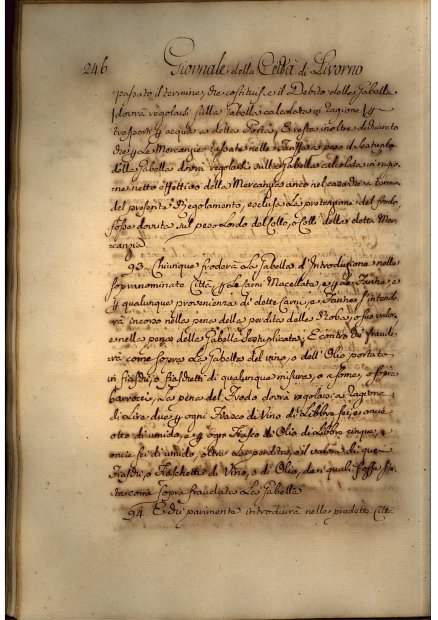 246 Giornale della Città di Livorno
passato il termine, che costituisce il Debito della Gabella
dovrà regolarsi sulla Gabella calcolata in ragione
trasporti acqua a detta Porta; E resta inoltre dichiarato
che Mercanzie tassate nella Tariffa a peso
della Gabella dovrà regolarsi sulla Gabella calcolata in ragio,
ne netto effettivo della Mercanzia anco nel caso che a termini
del presente Regolamento, esclusa la pretenzione del frodo,
fosse dovuta sul peso Lordo del Collo, o Colli della detta Mer,
canzia
93. Chiunque froderà la Gabella d'Introduzione nella
sopranominata Città Carni Macellate, e le Farine, e
qualunque provenienza di dette Carni, e Farine s'intende
rà incorso nella pena della perdita della Roba, o suo valore
e nella pena della Gabella Settuplicata; E contro chi fraude
rà come sopra la Gabella del vino, o dell'Olio portato
in fiaschi, o fiaschetti di qualunque misura, o a some, o sopra
barrocci, la pena del Frodo dovrà regolarsi a Ragione
di Lire due ogni Fiasco di Vino di Libbre sei, e oncie
otto di umido, e ogni Fiasco di Olio di Libbre cinque, e
oncie sei di umido, oltre la perdita, o il valore di quei
Fiaschi, o Fiaschetti di Vino, e di Olio, de i quali fosse
come sopra fraudata la Gabella
94. E chi parimente introdurrà nella predetta Città